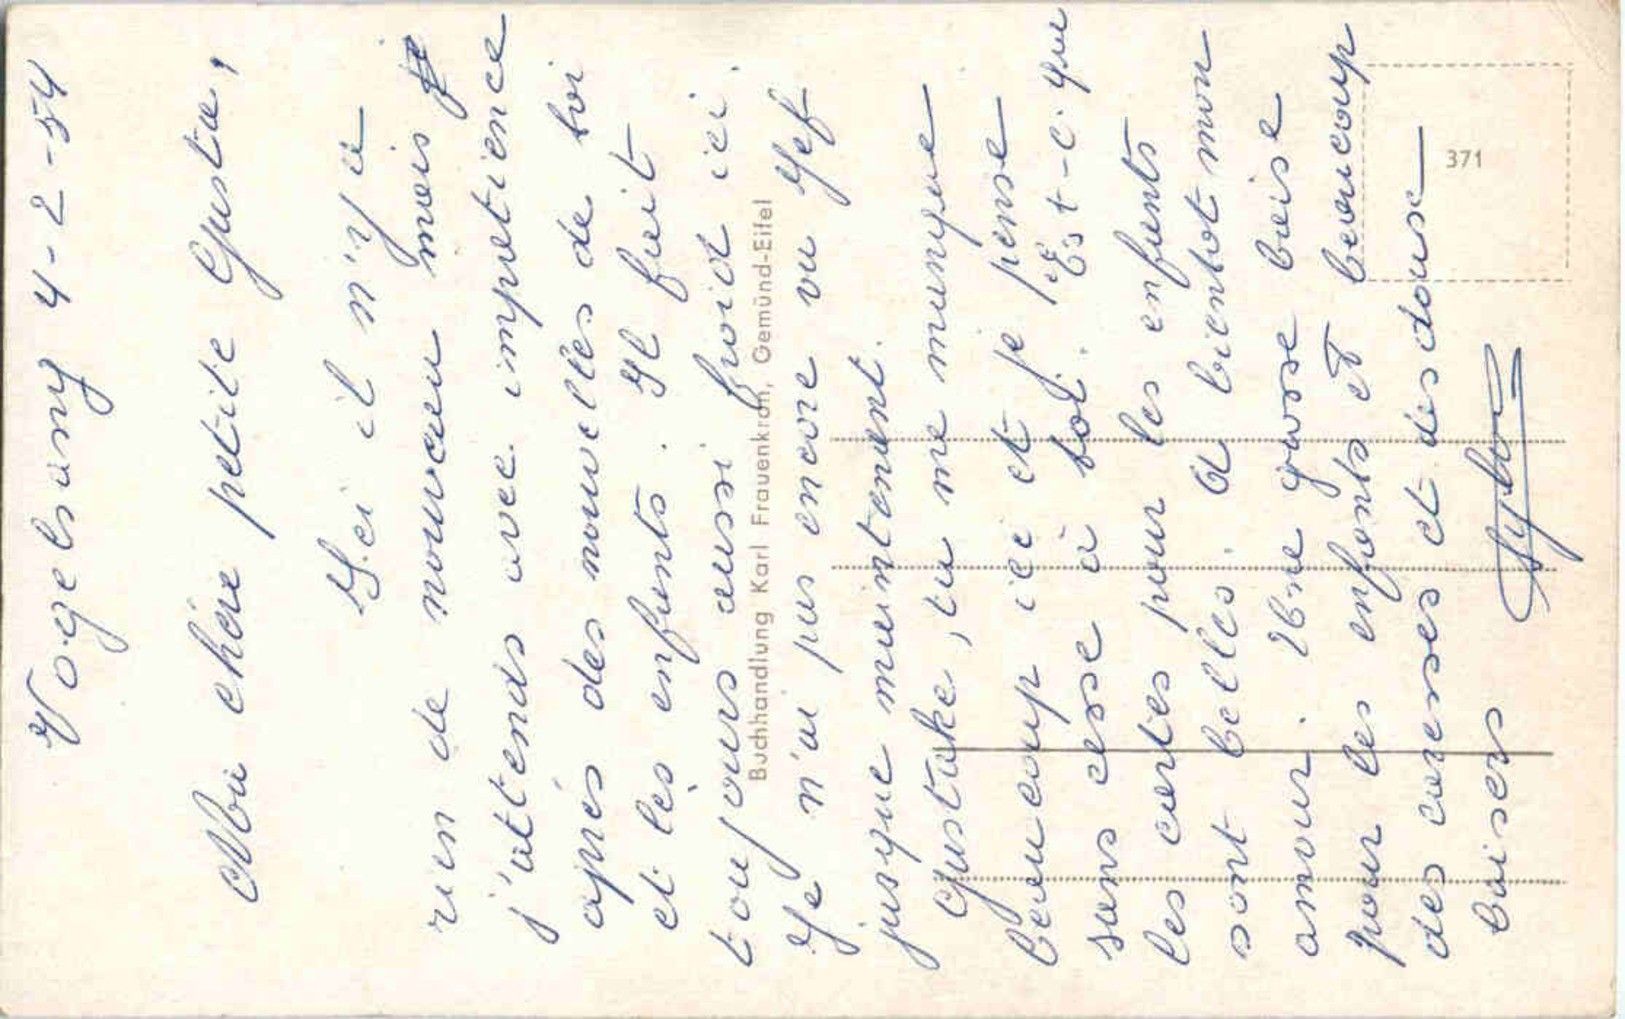 Vogelsang 4-2-54
Ma chère petite Gusta,
Ici il n'y a
rien de nouveau mais
j'attends avec impatience
après des nouvelles de toi
et les enfants. Il fait
toujours aussi froid ici.
Je n'ai pas encore vu Jef
jusque maintenant.
Gustake, tu me manque
beaucoup ici et je pense
sans cesse à toi. Est-c. que
les cartes pour les enfants
sont belles. A bientot mon
amour. Une grosse baise
pour les enfants et beaucoup
des caresses et des douse
baisers
Buchhandlung Karl Frauenkron, Gemünd-Eifel
371